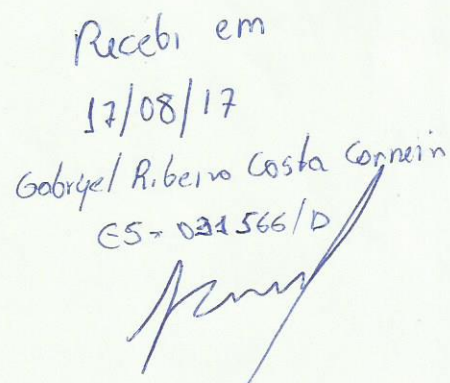 Recebi em
17/08/17
Gabryel Ribeiro Costa Correia
ES-031566/D